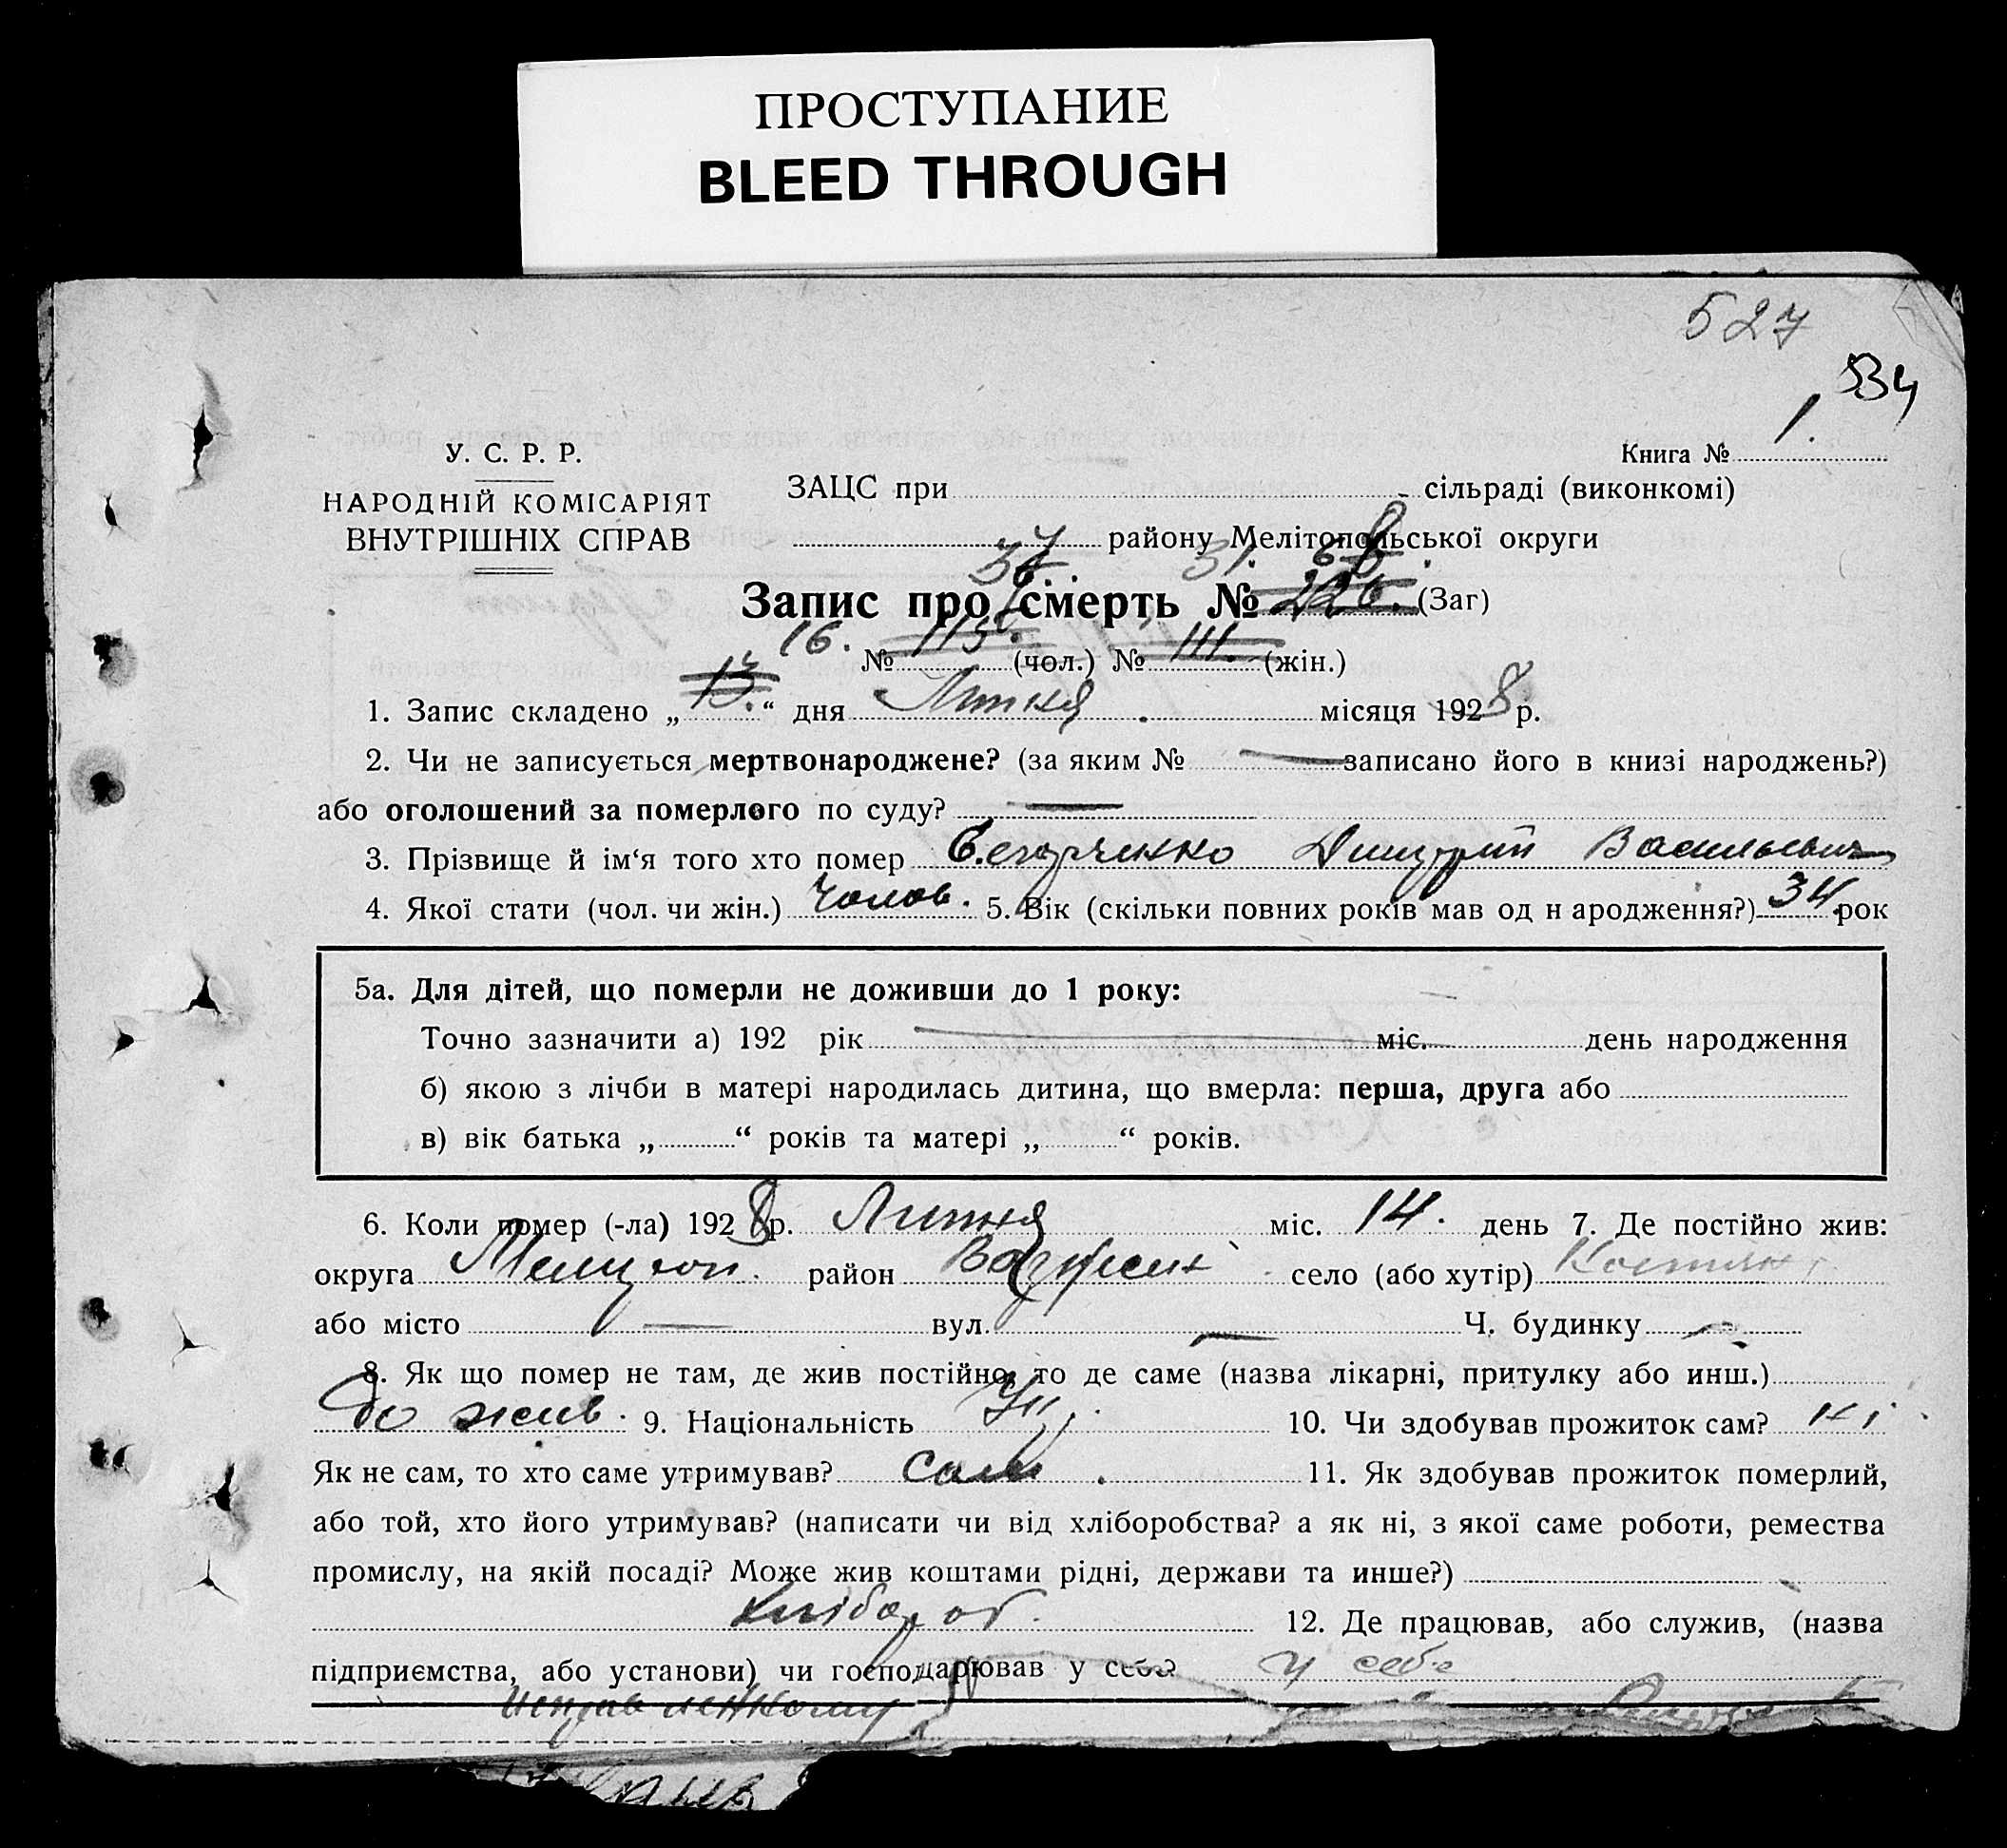 ПРОСТУПАНИЕ
BLEED THROUGH
527
534
У. С. Р. Р.
Книга № 1.
НАРОДНІЙ КОМІСАРІЯТ
ВНУТРІШНІХ СПРАВ
ЗАЦС при сільраді (виконкомі)
району Мелітопольської округи
31. 68.
Запис про смерть № 226. (Заг)
16. № 115. (чол.) № 111. (жін.)
1. Запис складено „13.“ дня Липня місяця 1928 р.
2. Чи не записується мертвонароджене? (за яким № — записано його в книзі народжень?)
або оголошений за померлого по суду? —
3. Прізвище й ім‘я того хто помер Егорченко Дмитрий Васильевич
4. Якої стати (чол. чи жін.) Чолов. 5. Вік (скільки повних років мав од н ародження?) 34 рок
5а. Для дітей, що померли не доживши до 1 року:
Точно зазначити а) 192 рік міс. день народження
б) якою з лічби в матері народилась дитина, що вмерла: перша, друга або
в) вік батька „ “ років та матері „ “ років.
6. Коли помер (-ла) 1928 р. Липня міс. 14. день 7. Де постійно жив:
округа Мелитоп. район село (або хутір)
або місто — вул. — Ч. будинку —
8. Як що помер не там, де жив постійно, то де саме (назва лікарні, притулку або инш.)
де жив. 9. Національність 10. Чи здобував прожиток сам? ні
Як не сам, то хто саме утримував? сам. 11. Як здобував прожиток померлий,
або той, хто його утримував? (написати чи від хліборобства? а як ні, з якої саме роботи, ремества
промислу, на якій посаді? Може жив коштами рідні, держави та инше?)
хлібороб. 12. Де працював, або служив, (назва
підприємства, або установи) чи господарював у себе? у себе